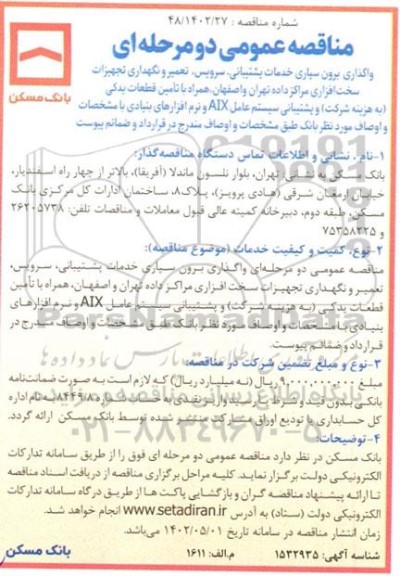 شماره مناقصه : ۴۸/۱۴۰۲/۲۷
مناقصه عمومی دو مرحله ای
بانک مسکن
واگذاری برون سپاری خدمات پشتیبانی، سرویس، تعمیر و نگهداری تجهیزات
سخت افزاری مراکز داده تهران واصفهان،همراه با تأمین قطعات یدکی
(به هزینه شرکت) و پشتیبانی سیستم عامل AIX و نرم افزارهای بنیادی با مشخصات
و اوصاف مورد نظر بانک طبق مشخصات و اوصاف مندرج در قرارداد و ضمائم پیوست
۱-نام، نشانی و اطلاعات تماس دستگاه مناقصه گذار:
بانک مسکن به نشانی (تهران، بلوار نلسون ماندلا (آفریقا)، بالاتر از چهار راه اسفندیار،
خیابان ارمغان شرقی (هادی پرویز)، پلاک۸، ساختمان ادارات کل مرکزی بانک
مسکن، طبقه دوم، دبیرخانه کمیته عالی قبول معاملات و مناقصات تلفن: ۲۶۲۰۵۷۳۸
و ۷۵۳۵۸۲۲۵
۲-نوع، کمیت و کیفیت خدمات (موضوع مناقصه):
مناقصه عمومی دو مرحله‌ای واگذاری برون سپاری خدمات پشتیبانی، سرویس،
تعمیر و نگهداری تجهیزات سخت افزاری مراکز داده تهران و اصفهان، همراه با تأمین
قطعات یدکی (به هزینه شرکت) و پشتیبانی سیستم عامل AIX و نرم افزارهای
بنیادی با مشخصات و اوصاف مورد نظر بانک طبق مشخصات و اوصاف مندرج در
قرارداد و ضمائم پیوست.
۳-نوع و مبلغ تضمین شرکت در مناقصه:
مبلغ ۹,۰۰۰,۰۰۰,۰۰۰ ریال (نه میلیارد ریال) که لازم است به صورت ضمانت‌نامه
بانکی بدون قید و شرط یا واریز نقدی به حساب به نام اداره
کل حسابداری یا تودیع اوراق مشارکت منتشر شده توسط بانک مسکن ارائه گردد.
۴-توضیحات:
بانک مسکن در نظر دارد مناقصه عمومی دو مرحله ای فوق را از طریق سامانه تدارکات
الکترونیکی دولت برگزار نماید. کلیه مراحل برگزاری مناقصه از دریافت اسناد مناقصه
تا ارائه پیشنهاد مناقصه گران و بازگشایی پاکت ها از طریق درگاه سامانه تدارکات
الکترونیکی دولت (ستاد) به آدرس www.setadiran.ir انجام خواهد شد.
زمان انتشار مناقصه در سامانه تاریخ ۱۴۰۲/۰۵/۰۱ می‌باشد.
شناسه آگهی: ۱۵۳۲۹۳۵ م.الف: ۱۶۱۱ بانک مسکن
ParsNamadData
۰۲۱-۸۸۳۴۹۶۷۰-۵